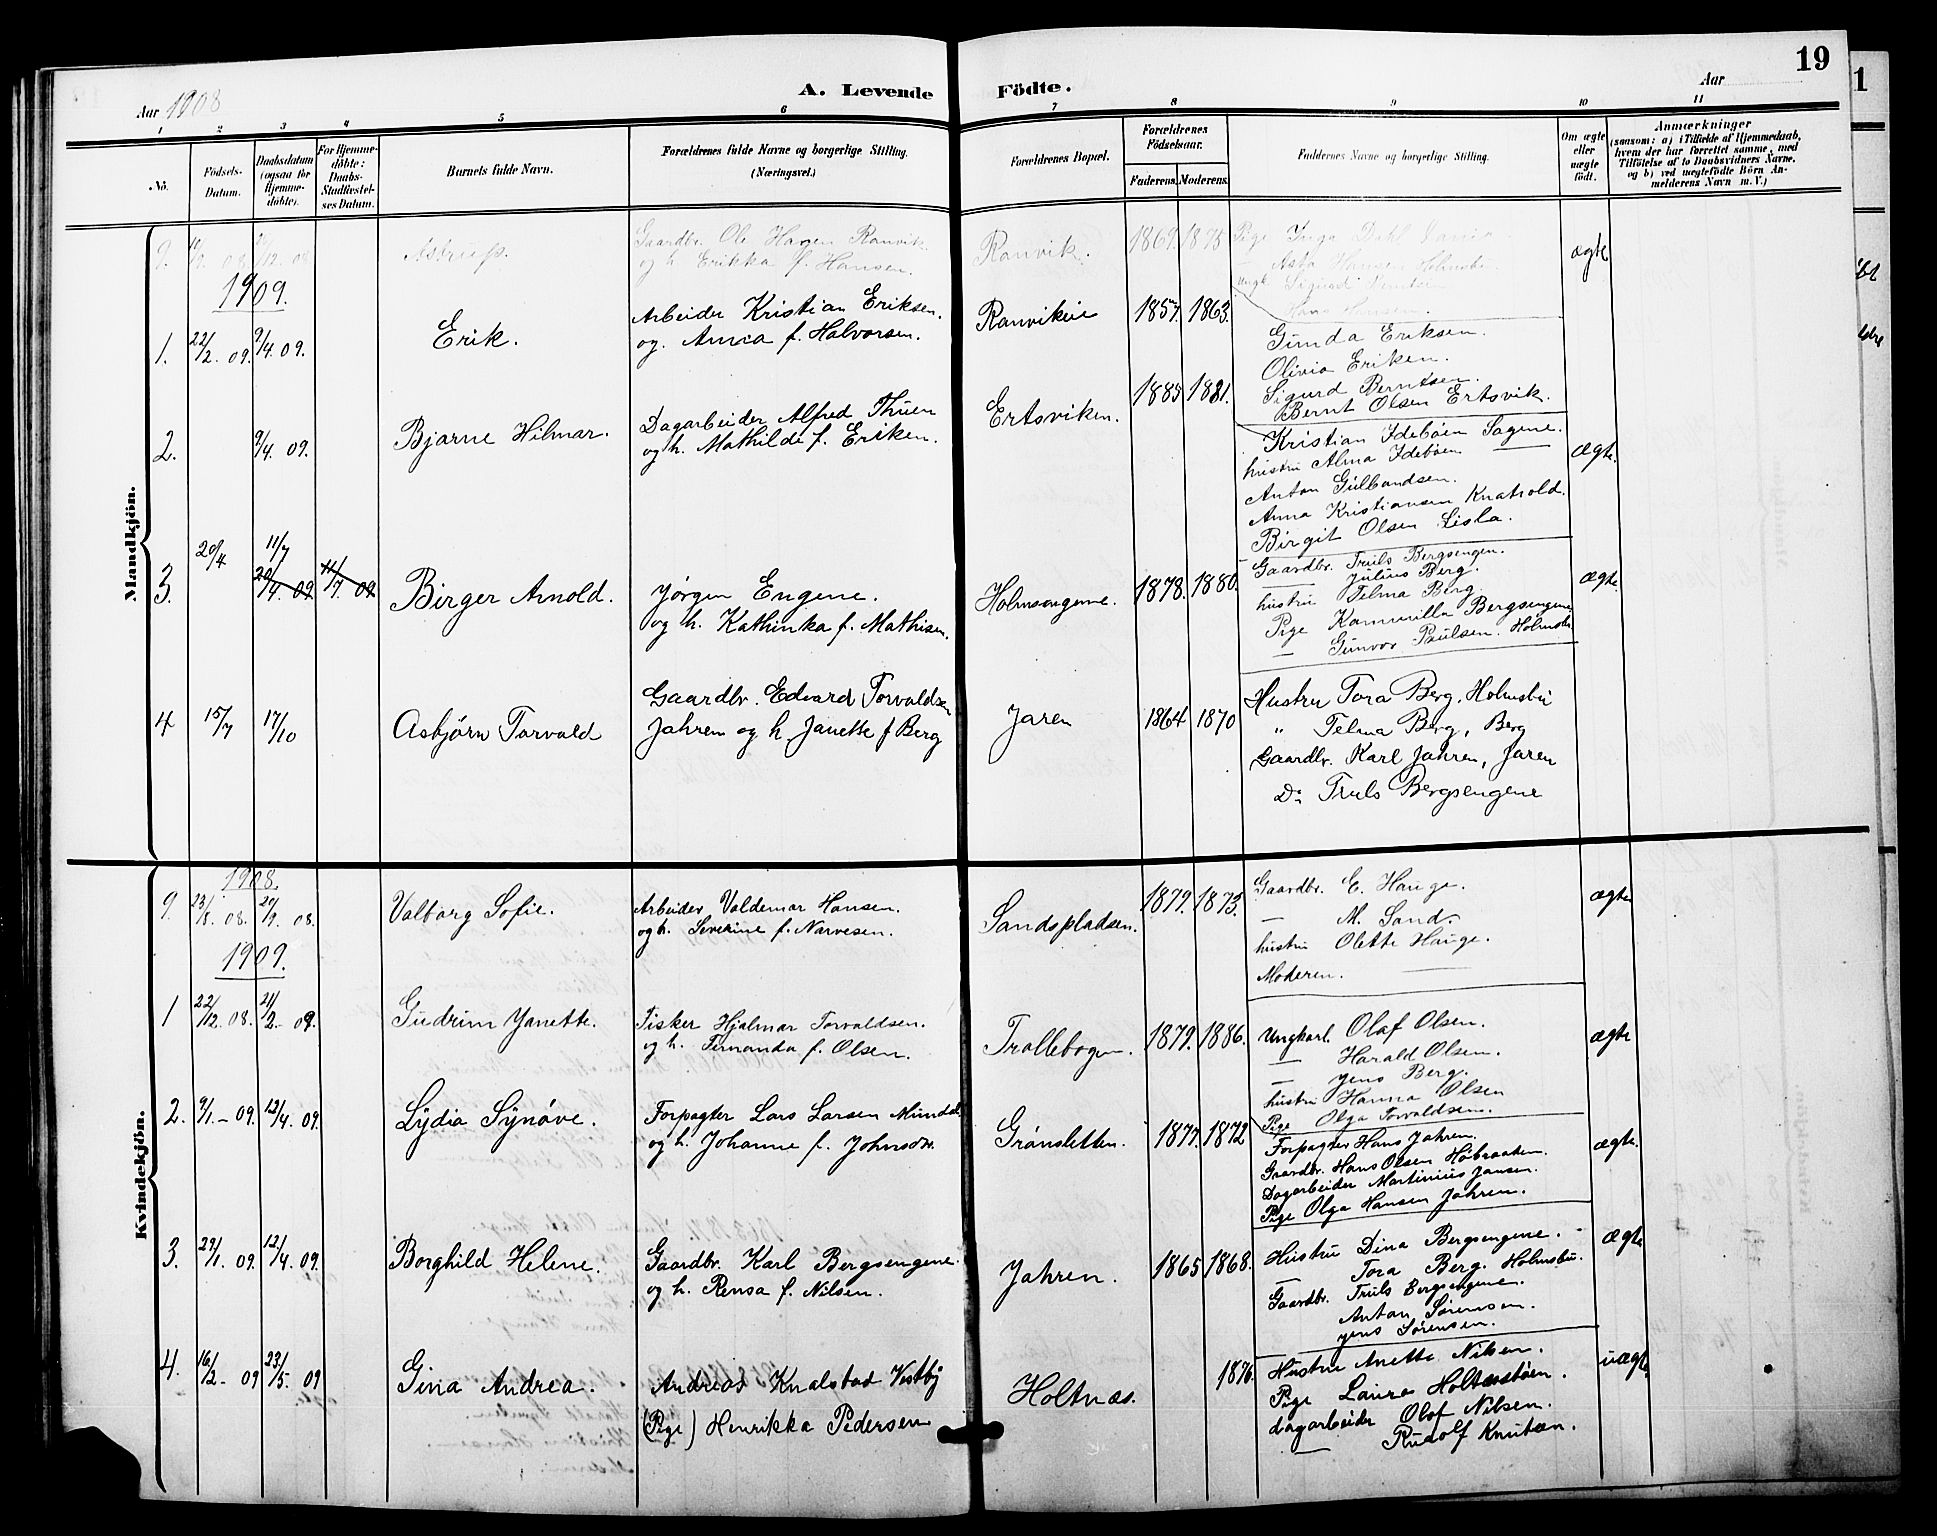 19
Aar 1908
A. Levende Födte.
Aar
1 2 3 4 5 6 7 8 9 10 11
No.
Födsels-Datum.
Daabsdatum (ogsaa for Hjemmedöbte).
For Hjemmedöbte: Daabs-Stadfæstelses Datum.
Barnets fulde Navn.
Forældrenes fulde Navne og borgerlige Stilling. (Næringsvei.)
Forældrenes Bopæl.
Forældrenes Födselsaar.
Faderens. Moderens.
Faddernes Navne og borgerlige Stilling.
Om ægte eller uægte födt.
Anmærkninger
(saasom: a) i Tilfælde af Hjemmedaab, hvem der har forrettet samme, med Tilföielse af to Daabsvidners Navne, og b) ved uægtefödte Börn Anmelderens Navn m. V.)
Mandkjön.
9. Astrup.
Gaardbr. Ole Hagen Ranvik
og h. Erikka f. Hansen.
Ranvik. 1869. 1875
Pige Inga Dahl
Hans Hansen.
ægte
1909.
1. 22/2. 09. 9/4. 09. Erik.
Arbeider Kristian Eriksen.
og. Anna f. Halvorsen.
Ranvikeie 1857. 1863.
Gunda Eriksen.
Olivia Eriken.
Sigurd Berntsen.
Bernt Olsen Ertsvik.
2. 9/4. 09. Bjarne Hilmar.
Dagarbeider Alfred Thuen
og h. Mathilde f. Eriken.
Ertsviken. 1885 1881.
Kristian Idebøen Sagene.
hustru Alma Idebøen —
Anton Gulbandsen.
Anna Kristiansen Knatvold.
Birgit Olsen Lisla.
ægte.
3. 20/4 11/7 20/4. 09. 11/7 09. Birger Arnold.
Jørgen Engene.
og h. Kathinka f. Mathisen.
Holmsengene. 1878. 1880.
Gaardbr. Truls Bergsengen.
— Julius Berg.
hustru Telma Berg.
Pige Kammilla Bergsengene
— Gunvor Paulsen. Holmsbu
ægte.
4 15/7 17/10 Asbjørn Torvald
Gaardbr. Edvard Torvaldsen
Jahren og h. Janette f Berg
Jaren 1864 1870
Hustru Tora Berg, Holmsbu
" Telma Berg, Berg
Gaardbr. Karl Jahren, Jaren
Do Truls Bergsengene
Kvindekjön.
1908.
9. 23/8. 08. 20/9. 08. Valborg Sofie.
Arbeider Valdemar Hansen.
og h. Severine f. Narvesen.
Sandspladsen. 1879. 1873.
Gaardbr. E. Hauge.
— M. Sand.
hustru Olette Hauge.
Moderen. —
ægte
1909.
1 22/12. 08. 21/2. 09. Gudrun Janette.
Fisker Hjalmar Torvaldsen.
og h. Fernanda f. Olsen.
Trollebogen. 1879. 1886.
Ungkarl. Olaf Olsen.
— Harald Olsen.
— Jens Berg.
hustru Hanna Olsen
Pige Olga Torvaldsen.
ægte
2. 9/1. 09. 12/4. 09. Lydia Synøve.
Forpagter Lars Larsen Mundal
og h. Johanne f. Johnsdr.
Grønsletten. 1877. 1872
Forpagter Hans Jahren.
Gaardbr. Hans Olsen Høibraaten.
Dagarbeider Martinius Jansen.
Pige Olga Hansen Jahren.
ægte.
3. 29/1. 09. 12/4. 09. Borghild Helene.
Gaardbr. Karl Bergsengene.
og h. Rensa f. Nilsen.
Jahren. 1865 1868.
Hustru Dina Bergsengene.
— Tora Berg. Holmsbu.
Gaardbr. Truls Bergsengene.
Anton Sørensen.
Jens Sørensen.
ægte
4. 16/2. 09 23/5. 09 Gina Andrea.
Andreas Knalstad Vestby
(Pige) Henrikka Pedersen
Holtnæs. 1876.
Hustru Anette Nilsen.
Pige Laura Holtnæstøen.
dagarbeider Olof Nilsen.
— Rudolf Knutsen.
uægte